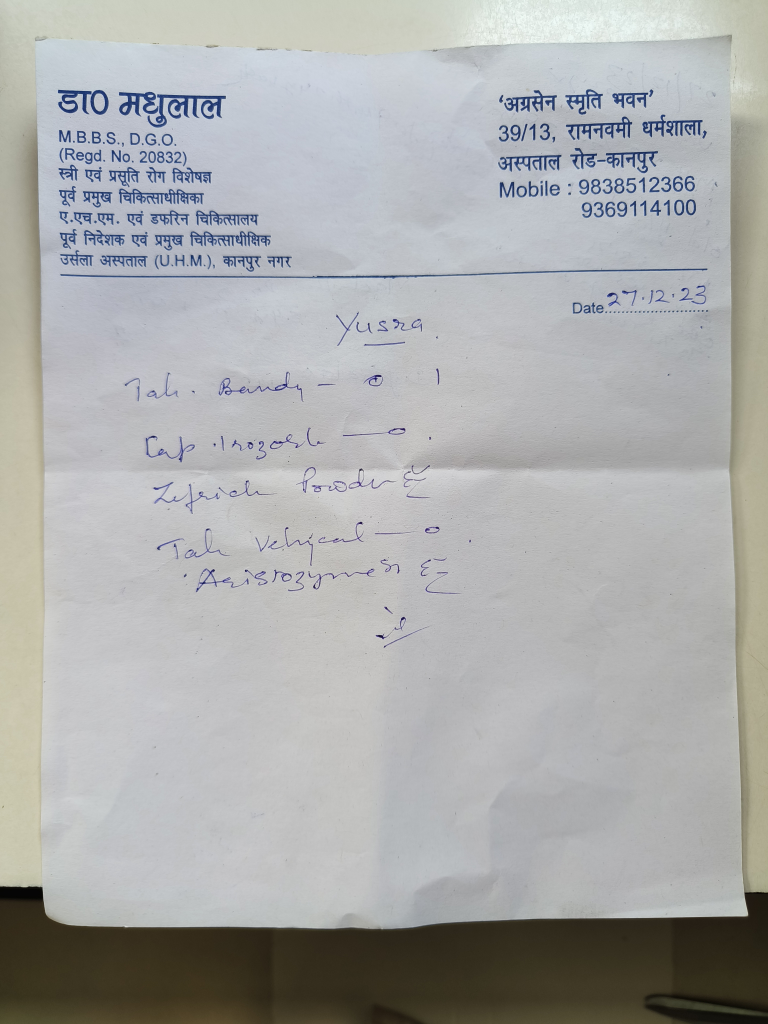 डा० मधुलाल
M.B.B.S., D.G.O.
(Regd. No. 20832)
स्त्री एवं प्रसूति रोग विशेषज्ञ
पूर्व प्रमुख चिकित्साधीक्षिका
ए.एच.एम. एवं डफरिन चिकित्सालय
पूर्व निदेशक एवं प्रमुख चिकित्साधीक्षिक
उर्सला अस्पताल (U.H.M.), कानपुर नगर
'अग्रसेन स्मृति भवन'
39/13, रामनवमी धर्मशाला,
अस्पताल रोड-कानपुर
Mobile : 9838512366
9369114100
Date 27.12.23
Yusra
Tab. Bandy – 0 1
Cap – 0
Powder
Tab – 0